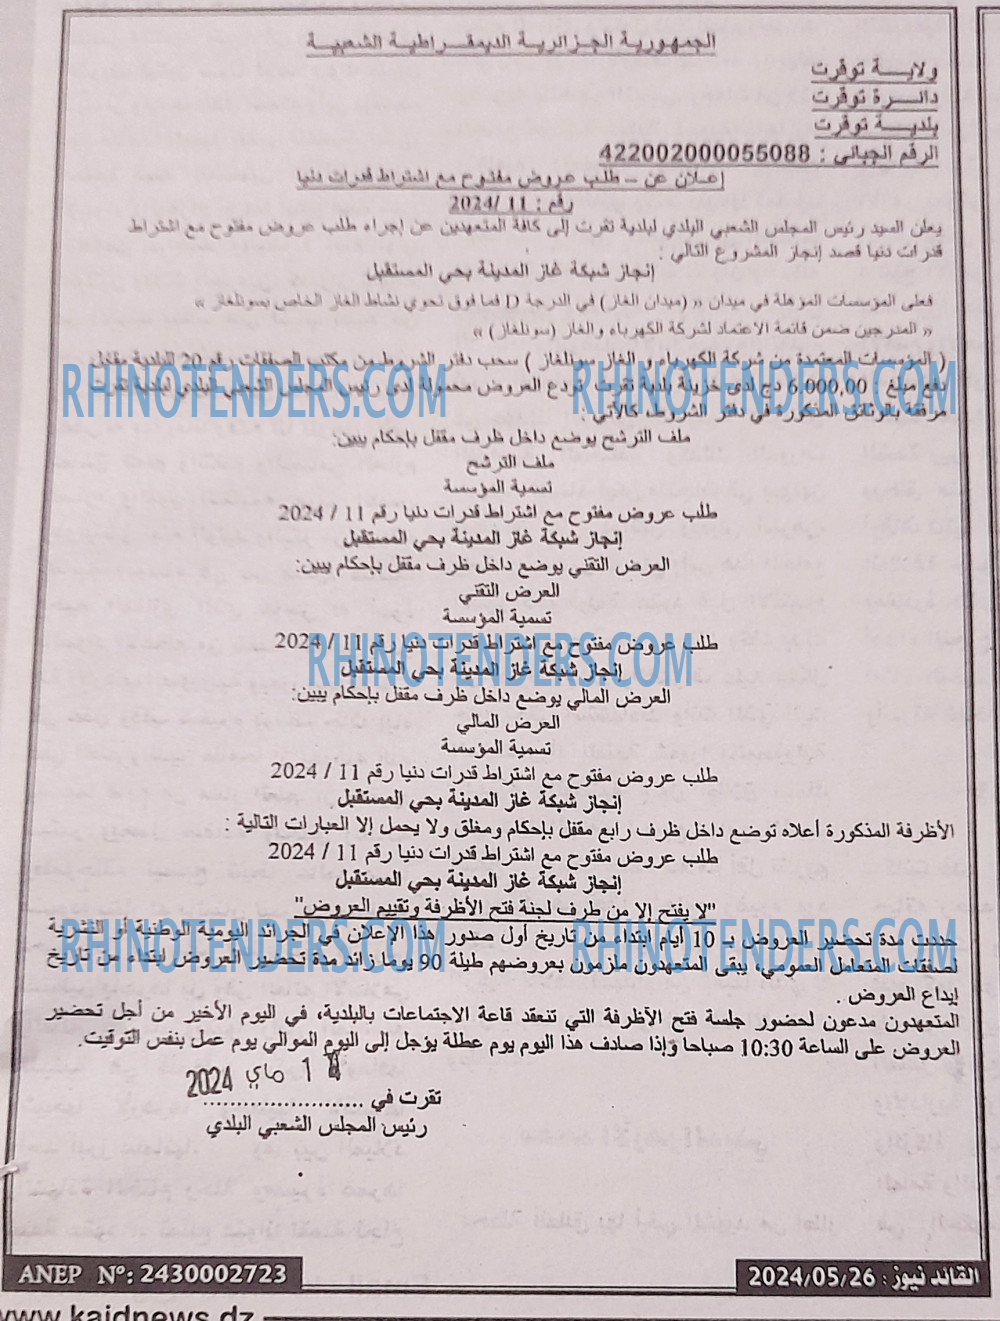 الجمهورية الجزائرية الديمقراطية الشعبية
ولاية توقرت
دائرة توقرت
بلدية توقرت
الرقم الجبائي : 422002000055088
إعلان عن - طلب عروض مفتوح مع اشتراط قدرات دنيا
رقم : 11 /2024
يعلن السيد رئيس المجلس الشعبي البلدي لبلدية تقرت إلى كافة المتعهدين عن إجراء طلب عروض مفتوح مع اشتراط
قدرات دنيا قصد إنجاز المشروع التالي :
إنجاز شبكة غاز المدينة بحي المستقبل
فعلى المؤسسات المؤهلة في ميدان « (ميدان الغاز) في الدرجة D فما فوق تحوي نشاط الغاز الخاص بسونلغاز »
« المدرجين ضمن قائمة الاعتماد لشركة الكهرباء والغاز (سونلغاز) »
( المؤسسات المعتمدة من شركة الكهرباء و الغاز سونلغاز ) سحب دفتر الشروط من مكتب الصفقات رقم 20 البلدية مقابل
دفع مبلغ : 6.000,00 دج لدى خزينة بلدية تقرت تودع العروض محمولة لدى رئيس المجلس الشعبي البلدي لبلدية تقرت
RHINOTENDERS.COM RHINOTENDERS.COM
مرفقة بالوثائق المذكورة في دفتر الشروط، كالآتي :
ملف الترشح يوضع داخل ظرف مقفل بإحكام يبين:
ملف الترشح
تسمية المؤسسة
طلب عروض مفتوح مع اشتراط قدرات دنيا رقم 11 / 2024
إنجاز شبكة غاز المدينة بحي المستقبل
العرض التقني يوضع داخل ظرف مقفل بإحكام يبين:
العرض التقني
تسمية المؤسسة
طلب عروض مفتوح مع اشتراط قدرات دنيا رقم 11 / 2024
RHINOTENDERS.COM
إنجاز شبكة غاز المدينة بحي المستقبل
العرض المالي يوضع داخل ظرف مقفل بإحكام يبين:
العرض المالي
تسمية المؤسسة
طلب عروض مفتوح مع اشتراط قدرات دنيا رقم 11 / 2024
إنجاز شبكة غاز المدينة بحي المستقبل
الأظرفة المذكورة أعلاه توضع داخل ظرف رابع مقفل بإحكام ومغلق ولا يحمل إلا العبارات التالية :
طلب عروض مفتوح مع اشتراط قدرات دنيا رقم 11 / 2024
إنجاز شبكة غاز المدينة بحي المستقبل
"لا يفتح إلا من طرف لجنة فتح الأظرفة وتقييم العروض"
حددت مدة تحضير العروض بـ 10 أيام ابتداء من تاريخ أول صدور هذا الإعلان في الجرائد اليومية الوطنية أو النشرية
RHINOTENDERS.COM RHINOTENDERS.COM
لصفقات المتعامل العمومي، يبقى المتعهدون ملزمون بعروضهم طيلة 90 يوما زائد مدة تحضير العروض ابتداء من تاريخ
إيداع العروض .
المتعهدون مدعون لحضور جلسة فتح الأظرفة التي تنعقد قاعة الاجتماعات بالبلدية، في اليوم الأخير من أجل تحضير
العروض على الساعة 10:30 صباحا وإذا صادف هذا اليوم يوم عطلة يؤجل إلى اليوم الموالي يوم عمل بنفس التوقيت.
ماي 2024
تقرت في ........................
رئيس المجلس الشعبي البلدي
ANEP N°: 2430002723
القائد نيوز : 2024/05/26
www.kaidnews.dz